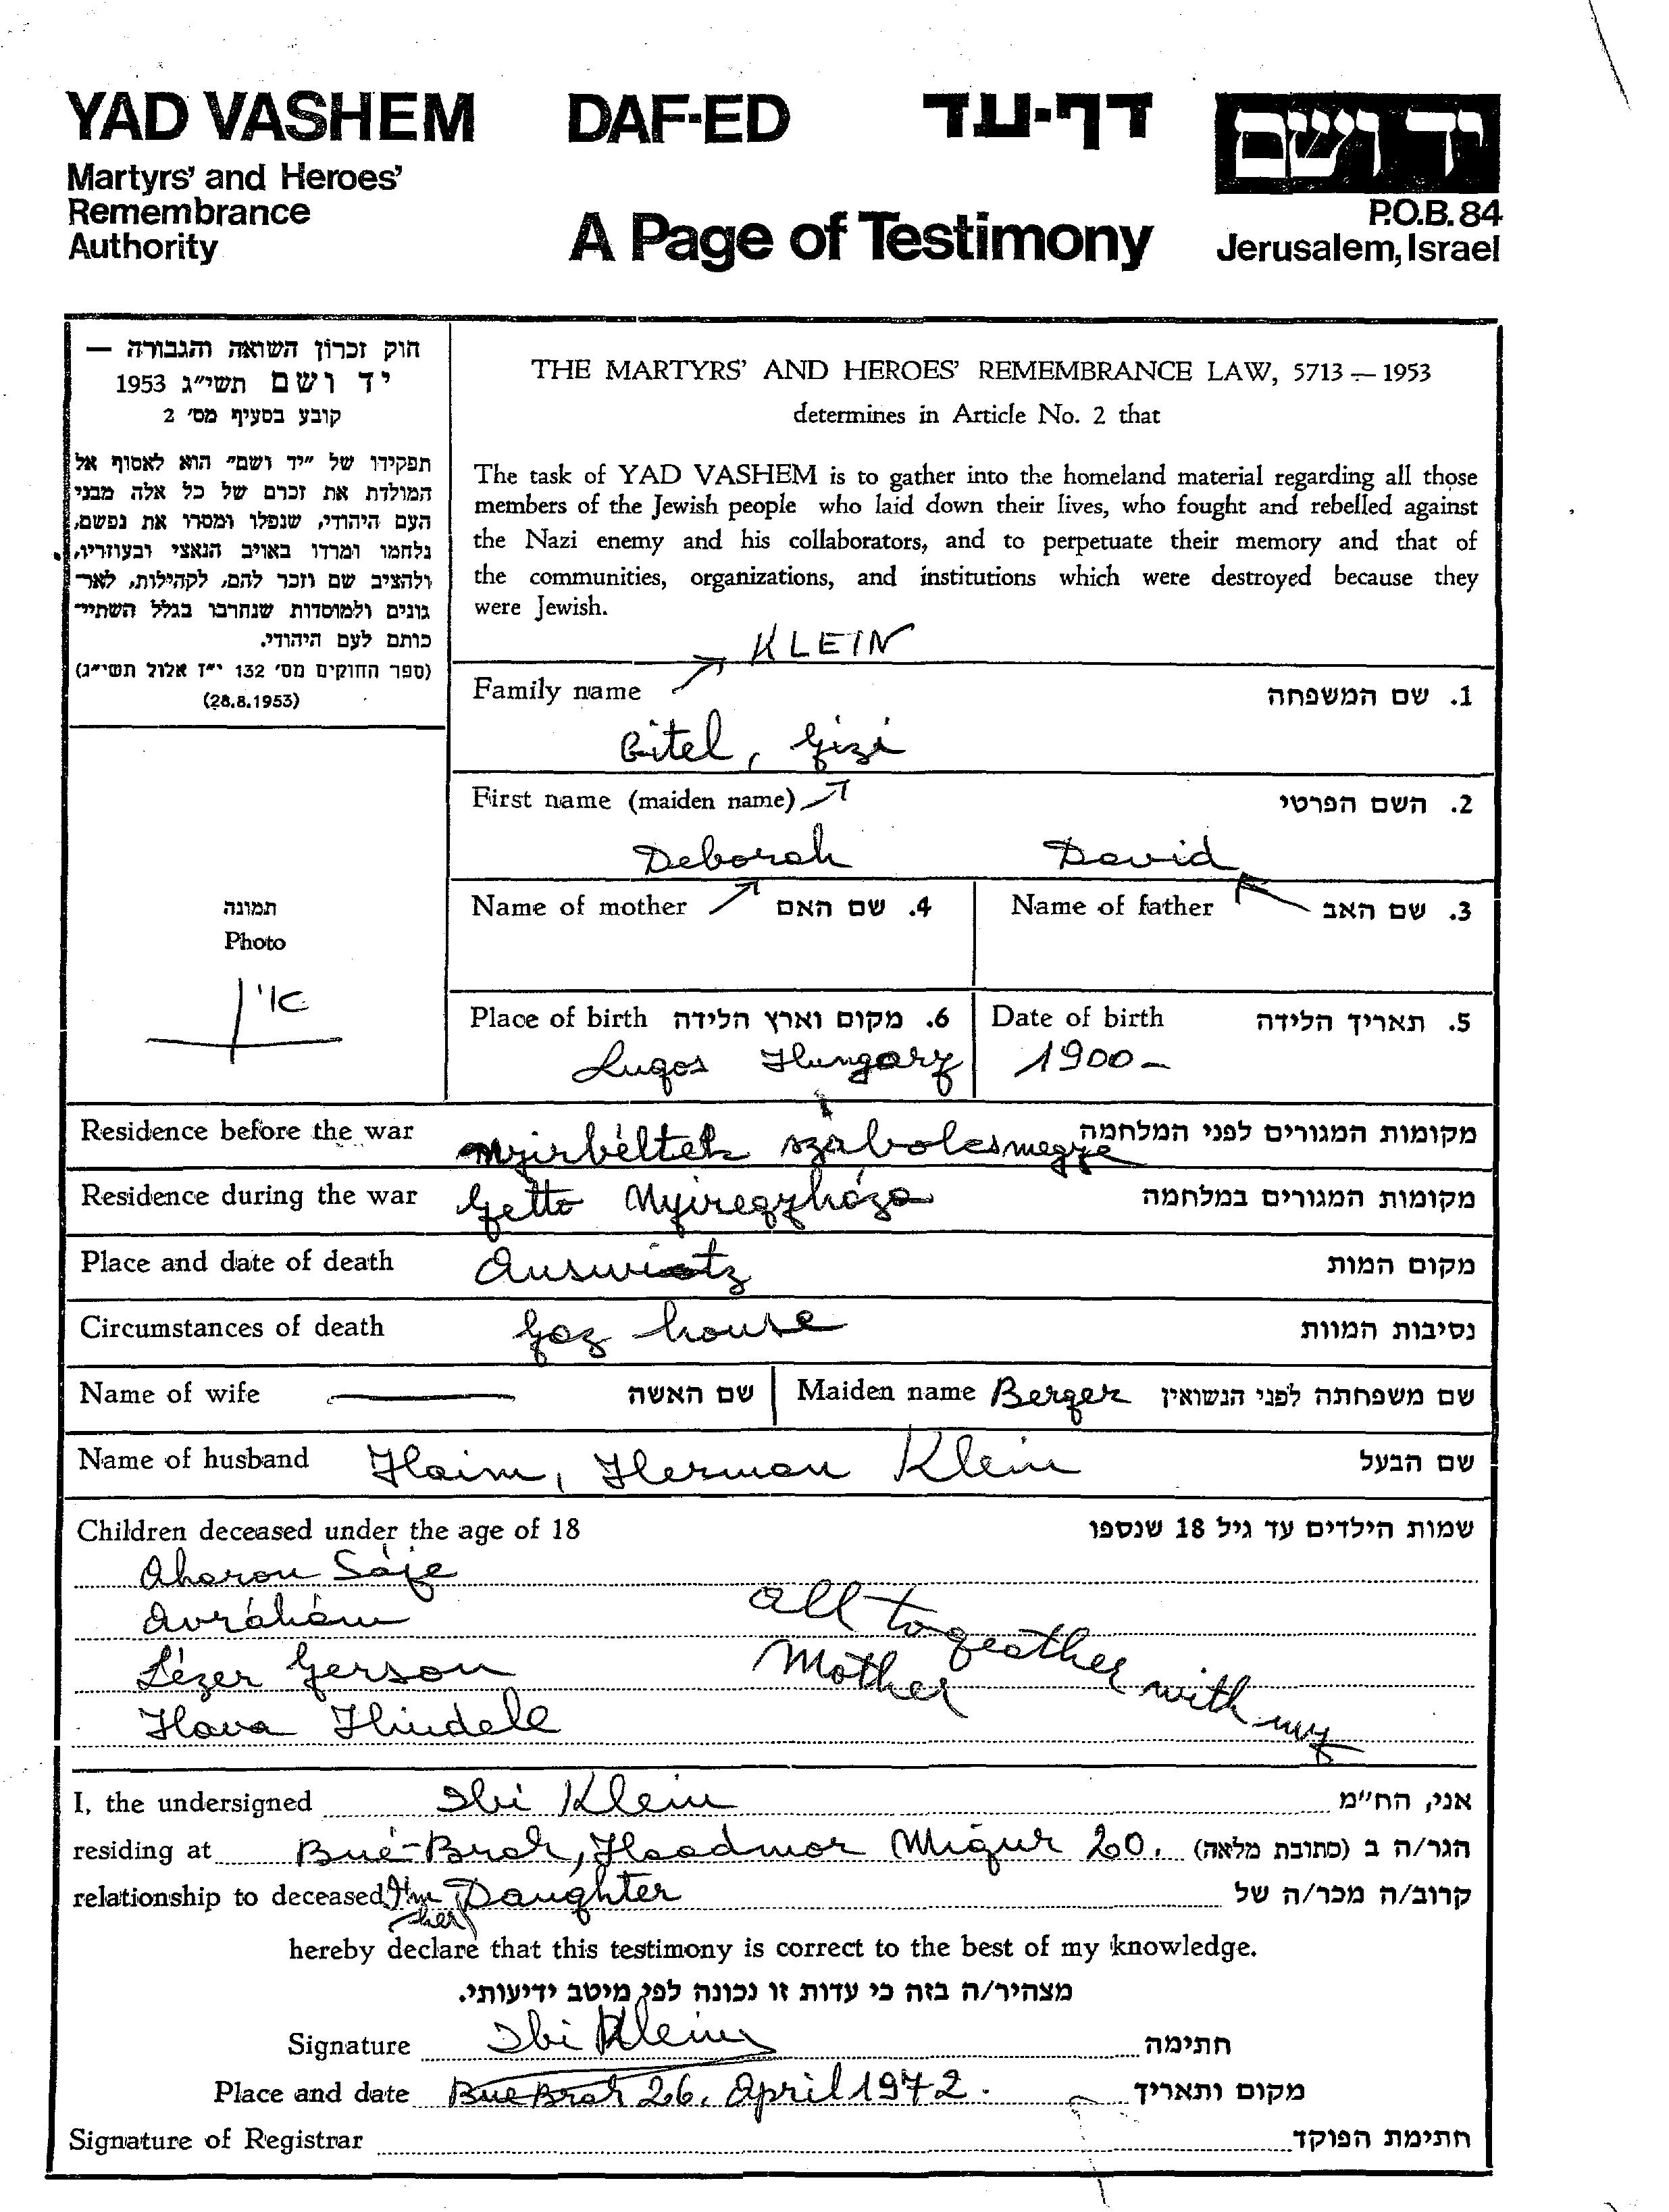 YAD VASHEM DAF-ED דף-עד יד ושם
Martyrs' and Heroes'
Remembrance
Authority
A Page of Testimony
P.O.B. 84
Jerusalem, Israel
חוק זכרון השואה והגבורה —
יד ושם תשי״ג 1953
קובע בסעיף מס׳ 2
תפקידו של ״יד ושם״ הוא לאסוף אל
המולדת את זכרם של כל אלה מבני
העם היהודי, שנפלו ומסרו את נפשם,
נלחמו ומרדו באויב הנאצי ובעוזריו,
ולהציב שם וזכר להם, לקהילות, לאר־
גונים ולמוסדות שנחרבו בגלל השתיי־
כותם לעם היהודי.
(ספר החוקים מס׳ 132 י״ז אלול תשי״ג)
(28.8.1953)
תמונה
Photo
אין
THE MARTYRS' AND HEROES' REMEMBRANCE LAW, 5713 — 1953
determines in Article No. 2 that
The task of YAD VASHEM is to gather into the homeland material regarding all those
members of the Jewish people who laid down their lives, who fought and rebelled against
the Nazi enemy and his collaborators, and to perpetuate their memory and that of
the communities, organizations, and institutions which were destroyed because they
were Jewish.
KLEIN
Family name 1. שם המשפחה
Gitel, Gizi
First name (maiden name) 2. השם הפרטי
Deborah David
Name of mother 4. שם האם Name of father 3. שם האב
Place of birth 6. מקום וארץ הלידה Date of birth 5. תאריך הלידה
Lugos Hungary 1900-
Residence before the war Nyirbéltek szabolcsmegye מקומות המגורים לפני המלחמה
Residence during the war Getto Nyiregyháza מקומות המגורים במלחמה
Place and date of death Auswiotz מקום המות
Circumstances of death Gaz house נסיבות המוות
Name of wife שם האשה Maiden name Berger שם משפחתה לפני הנשואין
Name of husband Haim, Herman Klein שם הבעל
Children deceased under the age of 18 שמות הילדים עד גיל 18 שנספו
Aharon Sáje
Avráhám
Lézer Gerson
Hava Hindele
All togeather with my
Mother
I, the undersigned Ibi Klein אני, הח״מ
residing at Bné-Brak, Haadmor Migur 20. הגר/ה ב (כתובת מלאה)
relationship to deceased I'm her Daughter קרוב/ה מכר/ה של
hereby declare that this testimony is correct to the best of my knowledge.
מצהיר/ה בזה כי עדות זו נכונה לפי מיטב ידיעותי.
Signature Ibi Klein חתימה
Place and date Bne Brak 26. April 1972. מקום ותאריך
Signature of Registrar חתימת הפוקד